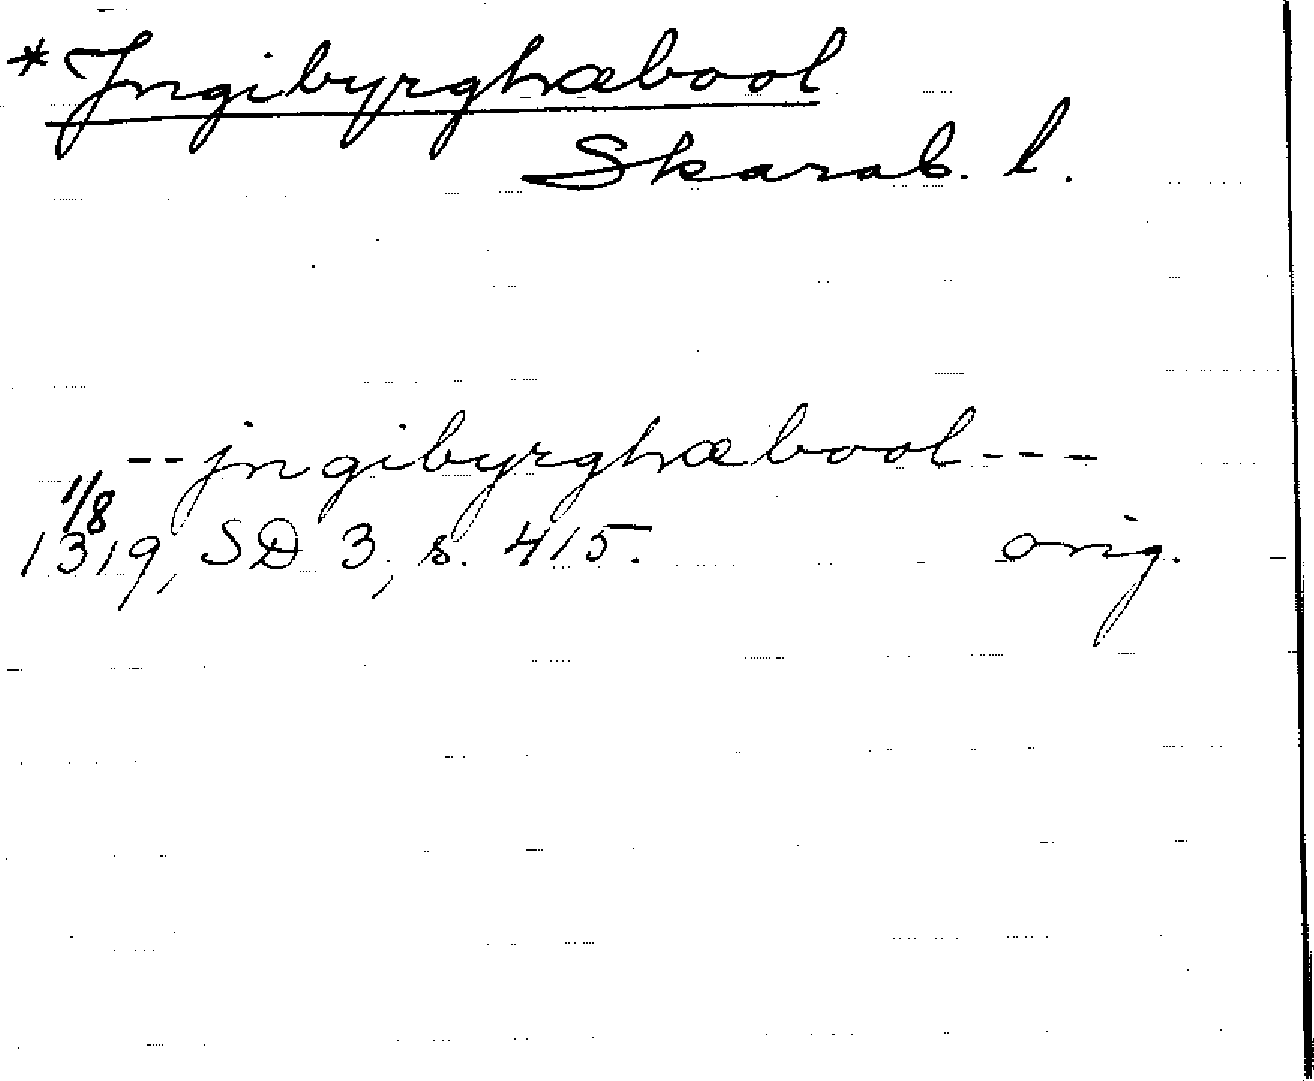 *Jngibyrghæbool
Skarab. l.
--jngibyrghæbool---
1/8
1319, SD 3, s. 415. orig.